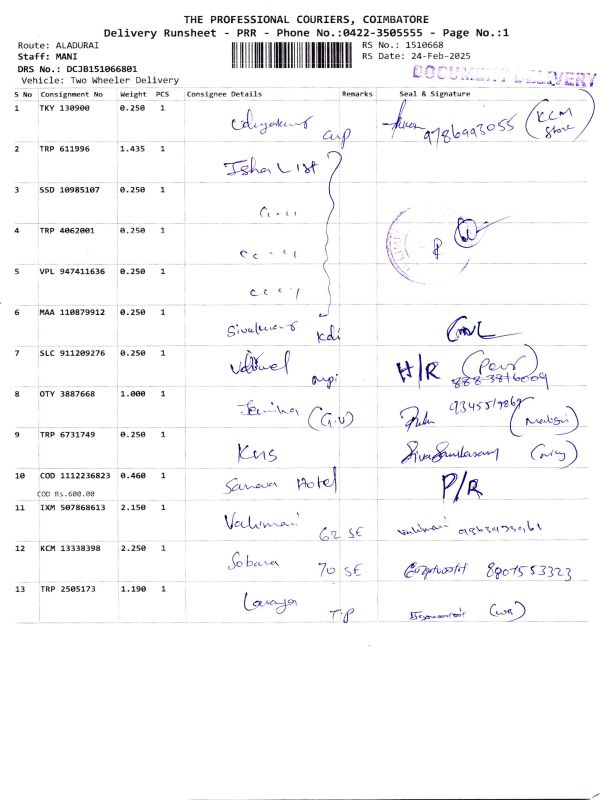 THE PROFESSIONAL COURIERS, COIMBATORE
Delivery Runsheet - PRR - Phone No.:0422-3505555 - Page No.:1
Route: ALADURAI RS No.: 1510668
Staff: MANI RS Date: 24-Feb-2025
DRS No.: DCJB151066801 DOCUMENT DELIVERY
Vehicle: Two Wheeler Delivery
S No Consignment No Weight PCS Consignee Details Remarks Seal & Signature
1 TKY 130900 0.250 1 Udayakumar cup 9786993055 (KCM Store)
2 TRP 611996 1.435 1 Isha List
3 SSD 10985107 0.250 1
4 TRP 4062001 0.250 1
5 VPL 947411636 0.250 1
6 MAA 110879912 0.250 1 Sivakumar kdi
7 SLC 911209276 0.250 1 H/R
8 OTY 3887668 1.000 1 (G.V)
9 TRP 6731749 0.250 1 KNS SivaSundaram
10 COD 1112236823 0.460 1 Hotel P/R
COD Rs.600.00
11 IXM 507868613 2.150 1 Valimai 62 SE
12 KCM 13338398 2.250 1 Sobana 70 SE 8807553323
13 TRP 2505173 1.190 1 Lavanya T.P